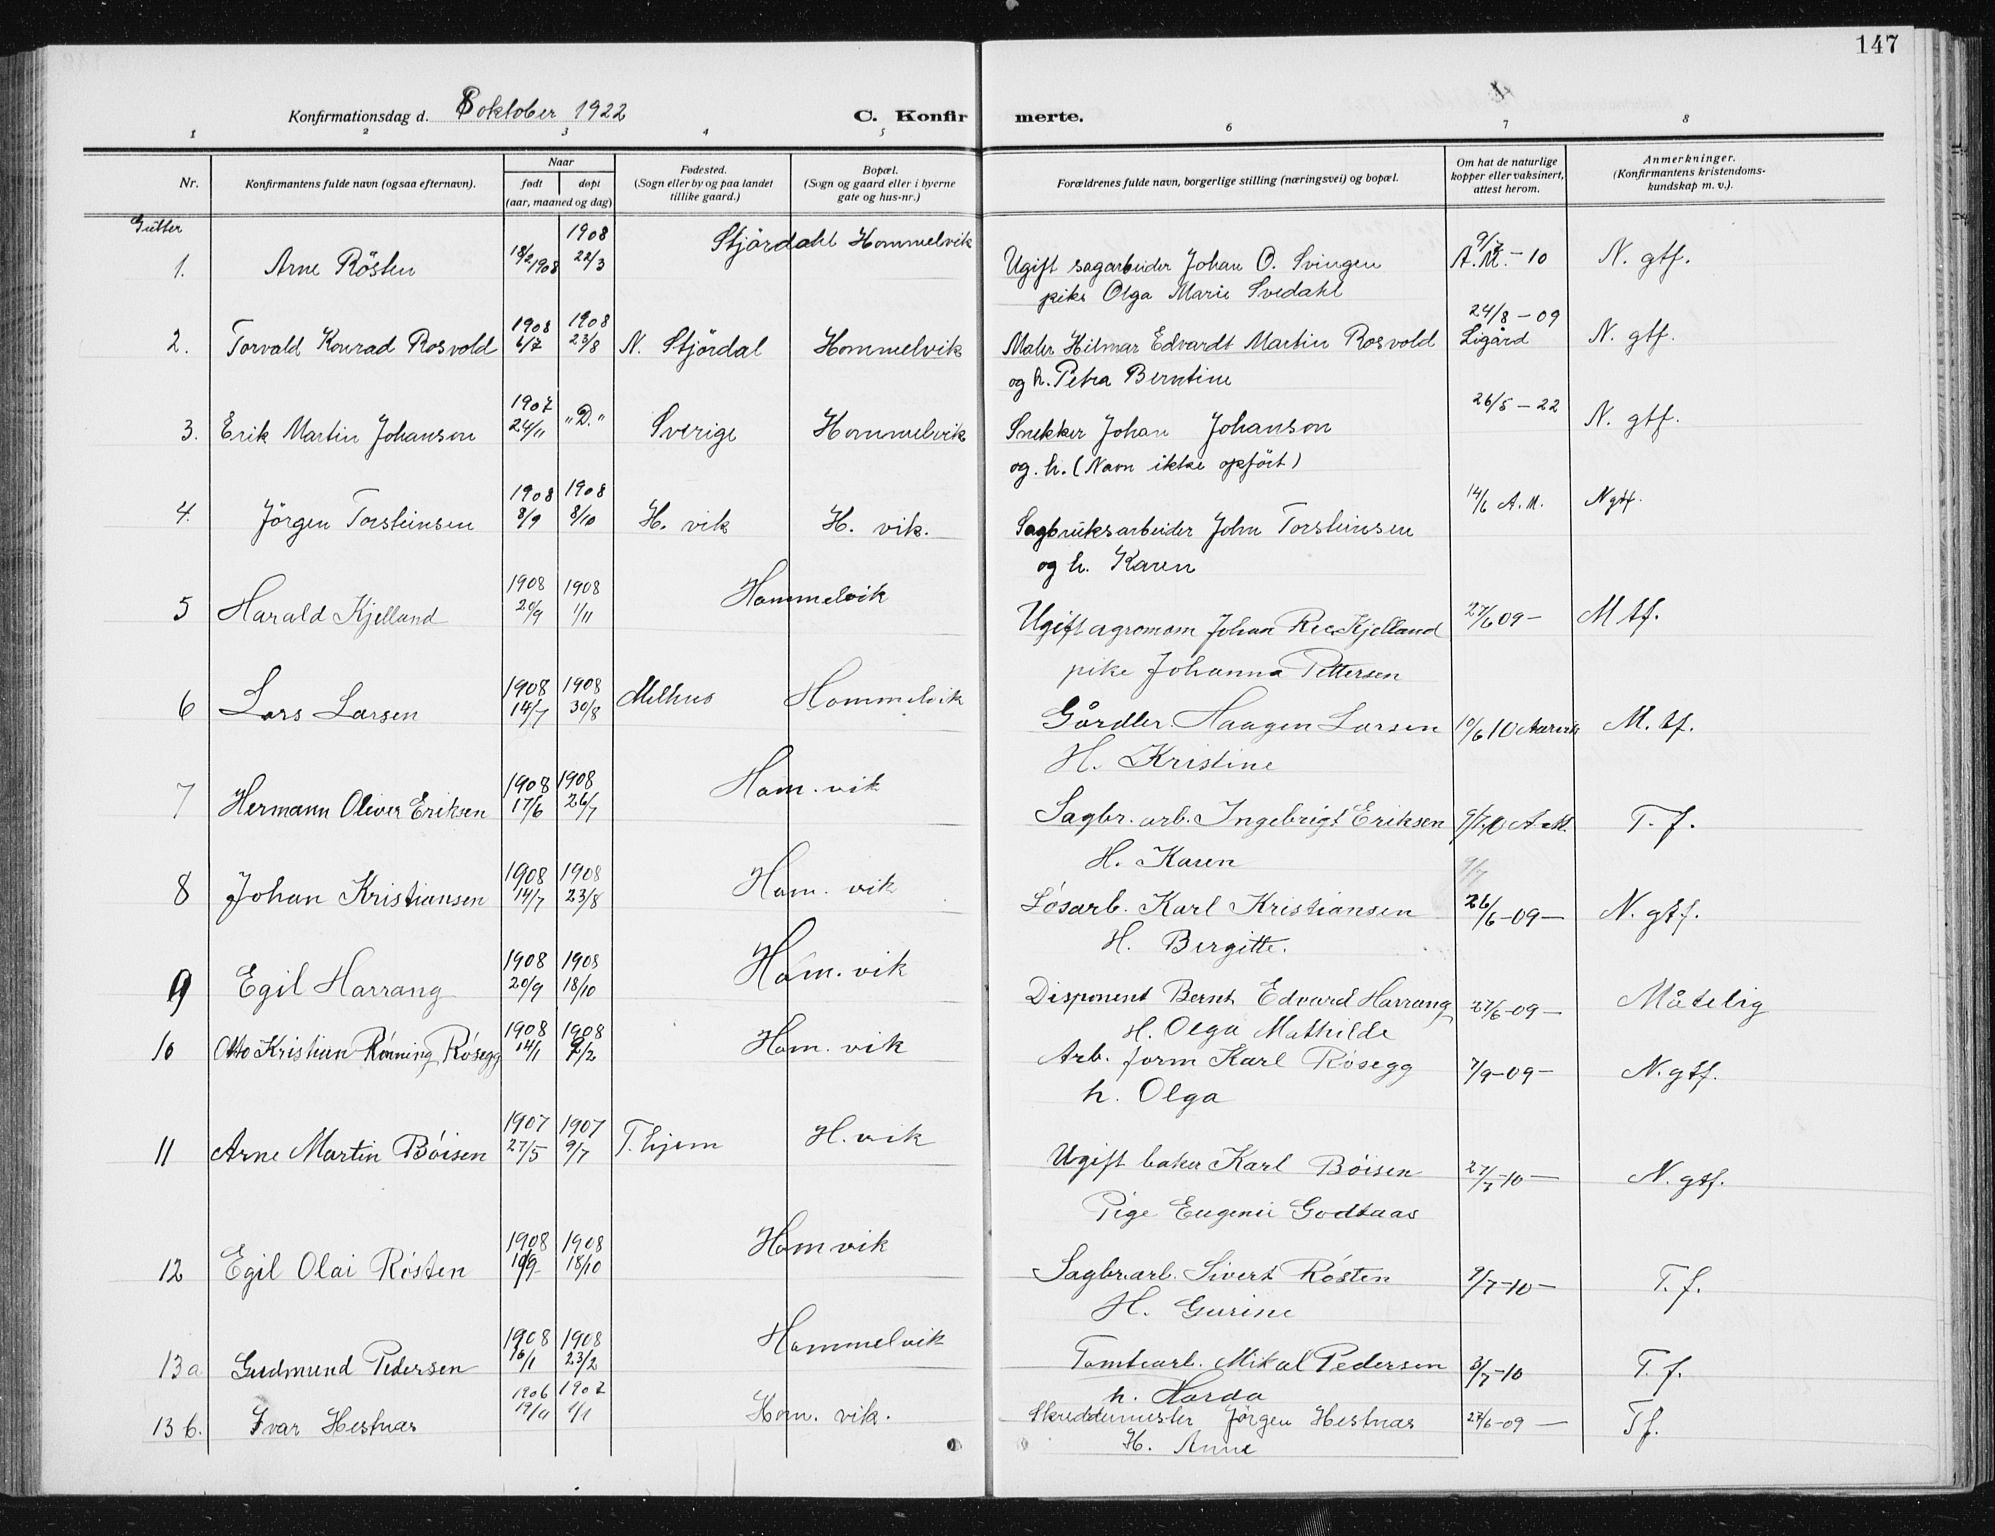 147
Konfirmationsdag d. 8 oktober 1922
C. Konfirmerte.
1 2 3 4 5 6 7 8
Nr.
Konfirmantens fulde navn (ogsaa efternavn).
Naar
født døpt
(aar, maaned og dag)
Fødested.
(Sogn eller by og paa landet
tillike gaard.)
Bopæl.
(Sogn og gaard eller i byerne
gate og hus-nr.)
Forældrenes fulde navn, borgerlige stilling (næringsvei) og bopæl.
Om hat de naturlige
kopper eller vaksinert,
attest herom.
Anmerkninger.
(Konfirmantens kristendoms-
kundskap m. v.).
Gutter
1. Arne Rösten 18/2 1908 1908 22/3 Stjørdahl Hommelvik Ugift sagarbeider Johan O. Svingen 9/7 A.M. - 10 N. gtf.
pike Olga Marie Svedahl
2. Torvald Konrad Rosvold 1908 6/7 1908 23/8 N. Stjördal Hommelvik Maler Hilmar Edvardt Martin Rosvold 24/8 - 09 Ligård N. gtf.
og h. Petra Berntine
3. Erik Martin Johanson 1907 24/11 "D." Sverige Hommelvik Snekker Johan Johanson 26/5 - 22 N. gtf.
og. h. (Navn ikke opfört)
4. Jörgen Torsteinsen 1908 8/9 1908 8/10 H. vik H. vik. Sagbruksarbeider John Torsteinsen 14/6 A.M. N gtf.
og h. Karen
5 Harald Kjelland 1908 20/9 1908 1/11 Hommelvik Ugift agronom Johan Kjelland 27/6 09 - M tf.
pike Johanna Pettersen
6 Lars Larsen 1908 14/7 1908 30/8 Melhus Hommelvik Gårdbr. Haagen Larsen 10/6 10 M. tf.
H. Kristine
7 Hermann Oliver Eriksen 1908 17/6 1908 26/7 Hom. vik Sagbr. arb. Ingebrigt Eriksen 9/7 10 A.M. T. f.
H. Karen
8 Johan Kristiansen 1908 14/7 1908 23/8 Hom. vik Løsarb. Karl Kristiansen 26/6 - 09 - N. gtf.
H. Bergitte.
9 Egil Harrang 1908 20/9 1908 18/10 Hom. vik Disponent Bernt Edvard Harrang 27/6 - 09 - Måtelig
H. Olga Mathilde
10 Otto Kristian Rønning Røsegg 1908 14/1 1908 2/2 Hom. vik Arb. form Karl Røsegg 7/9 - 09 - N. gtf.
h. Olga
11 Arne Martin Bøisen 1907 27/5 1907 9/7 T. hjem H. vik Ugift baker Karl Bøisen 27/7 - 10 - N. gtf.
Pige Eugenie Godtaas
12 Egil Olai Røsten 1908 10/9 1908 18/10 Hom vik Sagbr. arb. Sivert Røsten 9/7 - 10 - T. f.
H. Gurine
13 a Gudmund Pedersen 1908 16/1 1908 23/2 Hommelvik Tomtearb. Mikal Pedersen 3/7 - 10 T. f.
h. Harda
13 b. Ivar Hestnas 1906 19/11 1907 1/1 Hom. vik. Skreddermester Jörgen Hestnas 27/6 - 09 - T f.
H. Anne